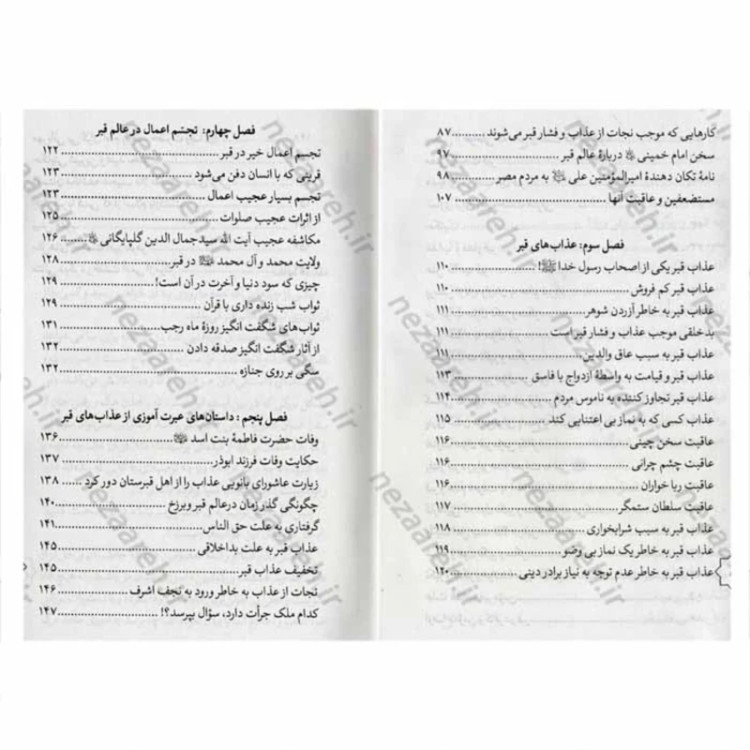 کارهایی که موجب نجات از عذاب و فشار قبر می‌شوند..........۸۷
سخن امام خمینی ره دربارهٔ عالم قبر..........۹۷
نامهٔ تکان دهندهٔ امیرالمؤمنین علی علیه السلام به مردم مصر..........۹۸
مستضعفین و عاقبت آنها..........۱۰۷
فصل سوم: عذاب‌های قبر
عذاب قبر یکی از اصحاب رسول خدا ﷺ!..........۱۱۰
عذاب قبر کم فروش..........۱۱۰
عذاب قبر به خاطر آزردن شوهر..........۱۱۱
بدخلقی موجب عذاب و فشار قبر است..........۱۱۱
عذاب قبر به سبب عاق والدین..........۱۱۱
عذاب قبر و قیامت به واسطهٔ ازدواج با فاسق..........۱۱۳
عذاب قبر تجاوز کننده به ناموس مردم..........۱۱۴
عذاب کسی که به نماز بی اعتنایی کند..........۱۱۵
عاقبت سخن چینی..........۱۱۶
عاقبت چشم چرانی..........۱۱۶
عاقبت ربا خواران..........۱۱۶
عاقبت سلطان ستمگر..........۱۱۷
عذاب قبر به سبب شرابخواری..........۱۱۸
عذاب قبر به خاطر یک نماز بی وضو..........۱۱۹
عذاب قبر به خاطر عدم توجه به نیاز برادر دینی..........۱۲۰
فصل چهارم: تجسّم اعمال در عالم قبر
تجسم اعمال خیر در قبر..........۱۲۲
قرینی که با انسان دفن می‌شود..........۱۲۳
تجسم بسیار عجیب اعمال..........۱۲۳
از اثرات عجیب صلوات..........۱۲۵
مکاشفه عجیب آیت الله سیدجمال الدین گلپایگانی ره..........۱۲۶
ولایت محمد و آل محمد ﷺ در قبر..........۱۲۸
چیزی که سود دنیا و آخرت در آن است!..........۱۲۹
ثواب شب زنده داری با قرآن..........۱۲۹
ثواب‌های شگفت انگیز روزهٔ ماه رجب..........۱۳۱
از آثار شگفت انگیز صدقه دادن..........۱۳۲
سگی بر روی جنازه..........۱۳۲
فصل پنجم: داستان‌های عبرت آموزی از عذاب‌های قبر
وفات حضرت فاطمهٔ بنت اسد..........۱۳۶
حکایت وفات فرزند ابوذر..........۱۳۷
زیارت عاشورای بانویی عذاب را از اهل قبرستان دور کرد..........۱۳۸
چگونگی گذر زمان در عالم قبر و برزخ..........۱۴۰
گرفتاری به علت حق الناس..........۱۴۱
عذاب قبر به علت بداخلاقی..........۱۴۵
تخفیف عذاب قبر..........۱۴۵
نجات از عذاب به خاطر ورود به نجف اشرف..........۱۴۶
کدام ملک جرأت دارد، سؤال بپرسد؟!..........۱۴۷
nezaareh.ir